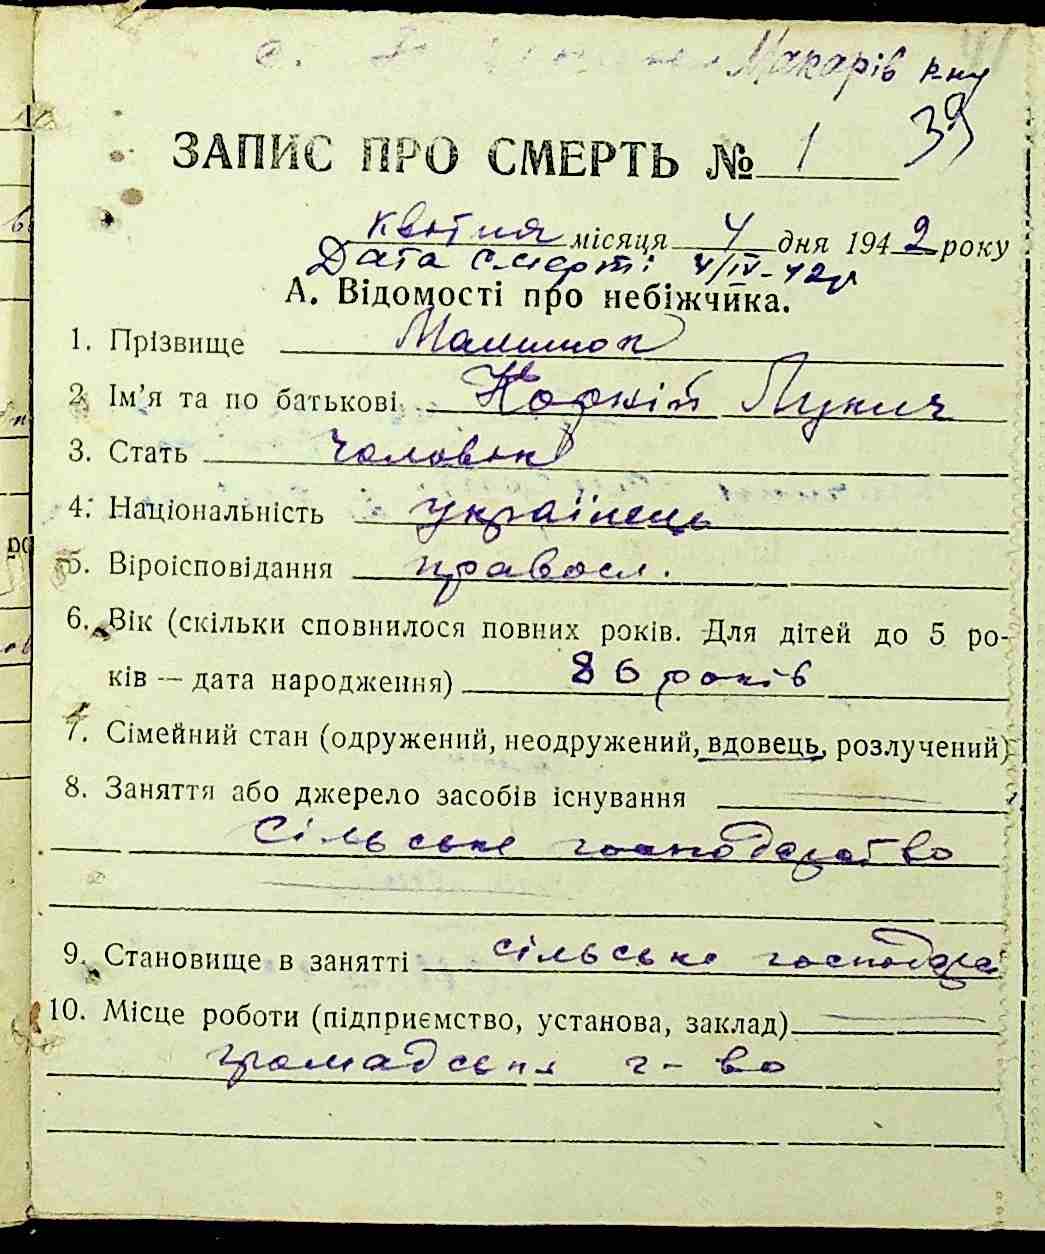 с. Макарів р-ну
39
ЗАПИС ПРО СМЕРТЬ № 1
квітня місяця 4 дня 1942 року
Дата смерті 4/IV-42р
А. Відомості про небіжчика.
1. Прізвище
2. Ім’я та по батькові Корній Лукич
3. Стать чоловік
4. Національність українець
5. Віроісповідання правосл.
6. Вік (скільки сповнилося повних років. Для дітей до 5 ро-
ків — дата народження) 86 років
7. Сімейний стан (одружений, неодружений, вдовець, розлучений)
8. Заняття або джерело засобів існування
сільське господарство
9. Становище в занятті сільське господар
10. Місце роботи (підприємство, установа, заклад)
громадське г-во